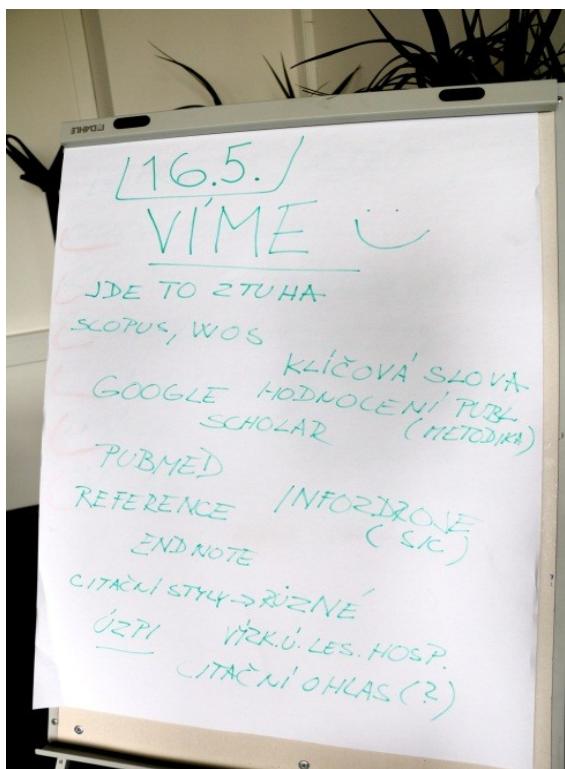 DAHLE
16.5.
VÍME
JDE TO ZTUHA
SCOPUS, WOS
KLÍČOVÁ SLOVA
GOOGLE SCHOLAR
HODNOCENÍ PUBL
(METODIKA)
PUBMED
REFERENCE
INFOZDROJE
(SIC)
ENDNOTE
CITAČNÍ STYLY → RŮZNÉ
ÚZPI VÝZK.Ú. LES. HOSP.
CITAČNÍ OHLAS (?)